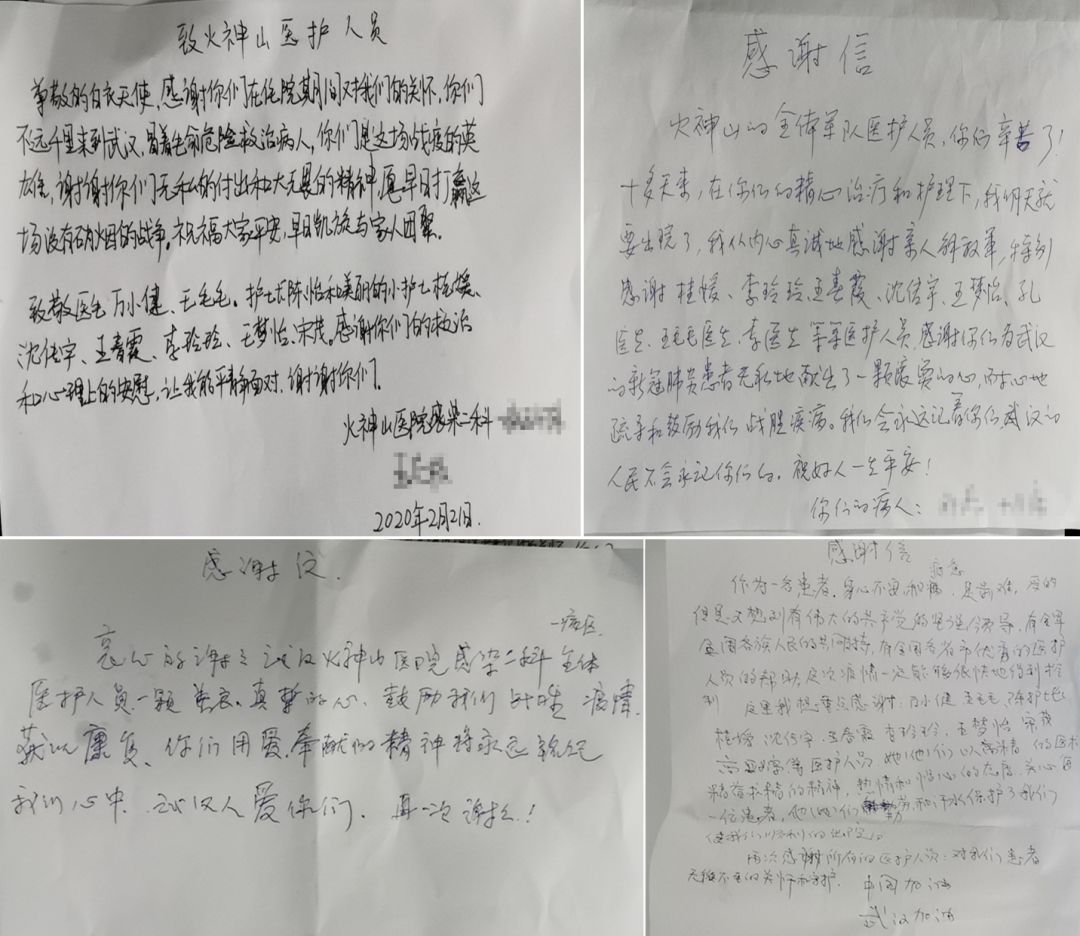 致火神山医护人员
尊敬的白衣天使，感谢你们在住院期间对我们的关怀，你们
不远千里来到武汉，冒着生命危险救治病人，你们是这场战疫的英
雄，谢谢你们无私的付出和大无畏的精神，愿早日打赢这
场没有硝烟的战争。祝福大家平安，早日凯旋与家人团聚。
致敬医生万小健、王毛毛。护士长陈怡和美丽的小护士桂媛、
沈佳宇、王春霞、李玲玲、王梦怡、宋茂。感谢你们的救治
和心理上的安慰，让我能平静面对，谢谢你们。
火神山医院感染二科
2020年2月21日.
感谢信
火神山的全体军队医护人员，你们辛苦了！
十多天来，在你们的精心治疗和护理下，我明天就
要出院了，我从内心真诚地感谢亲人解放军，特别
感谢桂媛、李玲玲、王春霞、沈佳宇、王梦怡、孔
医生、王毛毛医生、李医生等等医护人员，感谢你们为武汉
的新冠肺炎患者无私地献出了一颗最爱的心，耐心地
疏导和鼓励我们战胜疾病。我们会永远记着你们，武汉的
人民不会忘记你们的。祝好人一生平安！
你们的病人：
感谢信.
一病区
衷心的谢谢武汉火神山医院感染二科全体
医护人员一颗善良、真挚的心，鼓励我们战胜病情，
获以康复、你们用爱、奉献的精神将永远铭记
我们心中. 武汉人爱你们. 再一次谢谢！
感谢信
作为一名患者，身心不
但是又想到有伟大的共产党的坚强领导，有全军
全国各族人民的共同支持，有全国各省市优秀的医护
人员的帮助这次疫情一定能够很快地得到控
制 这里我想重点感谢：万小健 王毛毛，陈护士长
桂媛 沈佳宇 王春霞 李玲玲，王梦怡 宋茂
等医护人员，她(他)们以
的精神，热情和 心的态度，关心
一位患者，他(她)们 和汗水保护了我们
再次感谢所有的医护人员：对我们患者
无微不至的关怀和守护.
中国加油
武汉加油